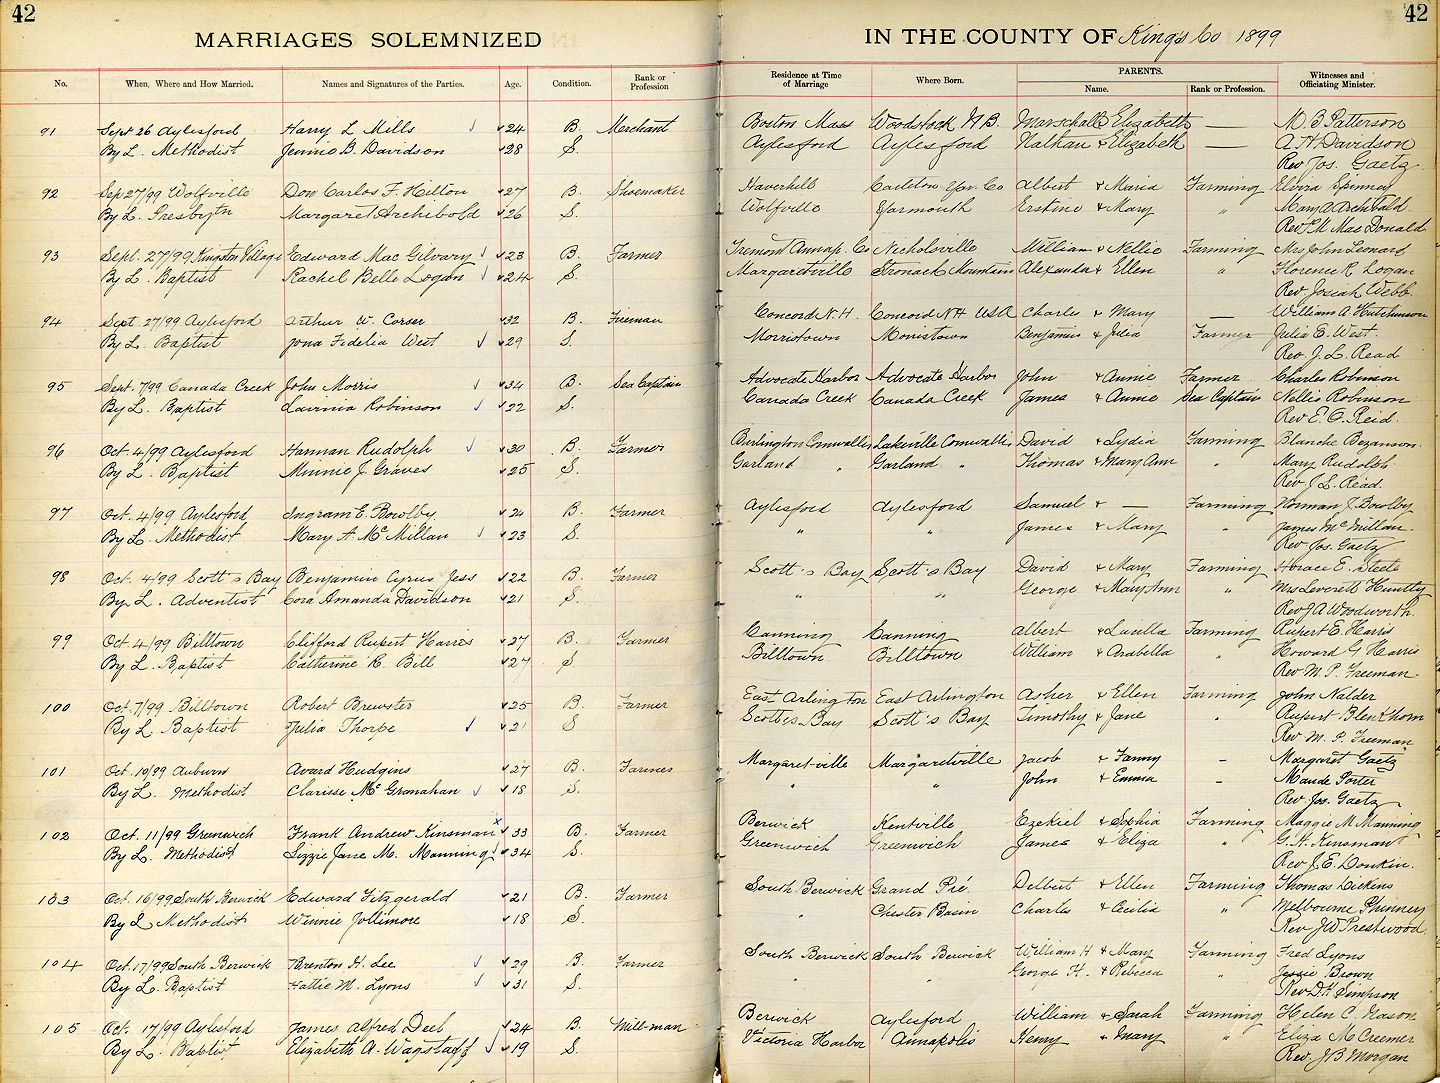 42
MARRIAGES SOLEMNIZED
No. When, Where and How Married. Names and Signatures of the Parties. Age. Condition. Rank or Profession
91 Sept 26 Aylesford Harry L Mills 24 B Merchant
By L. Methodist Jennie B. Davidson 28 S.
92 Sep 27/99 Wolfville Don Carlos F. Hilton 27 B. Shoemaker
By L. Presbytn Margaret Archibold 26 S.
93 Sept. 27/99 Kingston Village Edward Mac Gilvary 23 B. Farmer
By L. Baptist Rachel Belle Logan 24 S.
94 Sept. 27/99 Aylesford Arthur W. Corser 32 B. Fireman
By L. Baptist Iona Fidelia West 29 S.
95 Sept. 7/99 Canada Creek John Morris 34 B. Sea Captain
By L. Baptist Lavinia Robinson 22 S.
96 Oct. 4/99 Aylesford Hannan Rudolph 30 B. Farmer
By L. Baptist Minnie J. Graves 25 S.
97 Oct. 4/99 Aylesford Ingram E. Bowlby 21 B. Farmer
By L. Methodist Mary A. McMillan 23 S.
98 Oct. 4/99 Scott's Bay Benjamin Cyrus Jess 22 B. Farmer
By L. Adventist Cora Amanda Davidson 21 S.
99 Oct. 4/99 Billtown Clifford Rupert Harris 27 B. Farmer
By L. Baptist Catherine R. Bill 27 S.
100 Oct. 7/99 Billtown Robert Brewster 25 B. Farmer
By L Baptist Julia Thorpe 21 S
101 Oct. 10/99 Auburn Avard Hudgins 27 B. Farmer
By L. Methodist Clarisse Mc Granahan 18 S.
102 Oct. 11/99 Greenwich Frank Andrew Kinsman 33 B. Farmer
By L. Methodist Lizzie Jane M. Manning 34 S.
103 Oct. 16/99 South Berwick Edward Fitzgerald 21 B. Farmer
By L Methodist Winnie Jollimore 18 S.
104 Oct. 17/99 South Berwick Brenton H. Lee 29 B. Farmer
By L. Baptist Hattie M. Lyons 31 S.
105 Oct. 17/99 Aylesford James Alfred Deel 24 B. Mill-man
By L. Baptist Elizabeth A. Wagstaff 19 S.
42
IN THE COUNTY OF King's Co 1899
Residence at Time of Marriage Where Born. PARENTS. Name. Rank or Profession. Witnesses and Officiating Minister.
Boston Mass Woodstock N.B. Marschall & Elizabeth — M. B Patterson
Aylesford Aylesford Nathan & Elizabeth — A H Davidson
Rev Jos. Gaetz
Haverhill Carleton Yar. Co Albert & Maria Farming Elvira Spinney
Wolfville Yarmouth Erstine & Mary " Mary A Archibald
Rev P M Mac Donald
Tremont Annap. Co Nicholsville William & Nellie Farming Mrs John Leonard
Margaretville Stronach Mountain Alexander & Ellen " Florence R Logan
Rev Josiah Webb.
Concord N.H. Concord NH USA Charles & Mary — William A Hutchinson
Morristown Morristown Benjamin & Julia Farmer Julia E. West.
Rev. J. L. Read
Advocate Harbor Advocate Harbor John & Annie Farmer Charles Robinson
Canada Creek Canada Creek James & Annie Sea Captain Nellie Robinson
Rev E. O. Reid.
Burlington Cornwallis Lakeville Cornwallis David & Lydia Farming Blanche Bezanson
Garland " Garland " Thomas & Mary Ann " Mary Rudolph
Rev J L. Read.
Aylesford Aylesford Samuel & — Farming Norman J Bowlby
" " James & Mary " James McMillan
Rev Jos. Gaetz
Scott's Bay Scott's Bay David & Mary Farming Horace E. Steele
" " George & Mary Ann " Mrs Leverett Huntley
Rev J A Woodworth.
Canning Canning Albert & Lucilla Farming Rupert E. Harris
Billtown Billtown William & Arabella " Howard G Harris
Rev M. P. Freeman
East Arlington East Arlington Asher & Ellen Farming John Nalder
Scott's Bay Scott's Bay Timothy & Jane " Rupert Blenkhorn
Rev M. P. Freeman
Margaret-ville Margaretville Jacob & Fanny - Margaret Gaetz
" " John & Emma - Maude Porter
Rev. Jos. Gaetz
Berwick Kentville Ezekiel & Sophia Farming Maggie M Manning
Greenwich Greenwich James & Eliza " G. A. Kinsman
Rev J. E. Donkin.
South Berwick Grand Pré Delbert & Ellen Farming Thomas Dickens
" Chester Basin Charles & Cecilia " Melbourne Phinney
Rev JW Prestwood
South Berwick South Berwick William H & Mary Farming Fred Lyons
" " George H. & Rebecca " Jessie Brown
Rev D.H. Simpson
Berwick Aylesford William & Sarah Farming Helen C. Nason
Victoria Harbor Annapolis Henry & Mary " Eliza McCreemer
Rev. J B Morgan